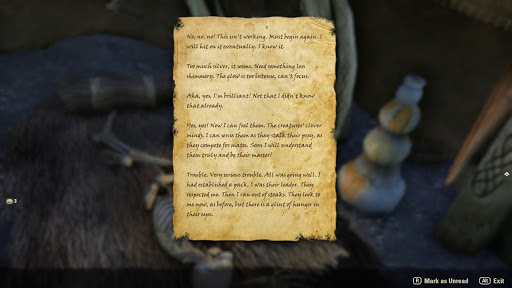 No, no, no! This isn't working. Must begin again. I
will hit on it eventually. I know it.
Too much silver, it seems. Need something less
shimmery. The glow is too intense, can't focus.
Aha, yes, I'm brilliant! Not that I didn't know
that already.
Yes, yes! Now I can feel them. The creatures' clever
minds. I can sense them as they stalk their prey, as
they compete for mates. Soon I will understand
them truly and be their master!
Trouble. Very serious trouble. All was going well. I
had established a pack. I was their leader. They
respected me. Then I ran out of steaks. They look to
me now, as before, but there is a glint of hunger in
their eyes.
3
R Mark as Unread Alt Exit